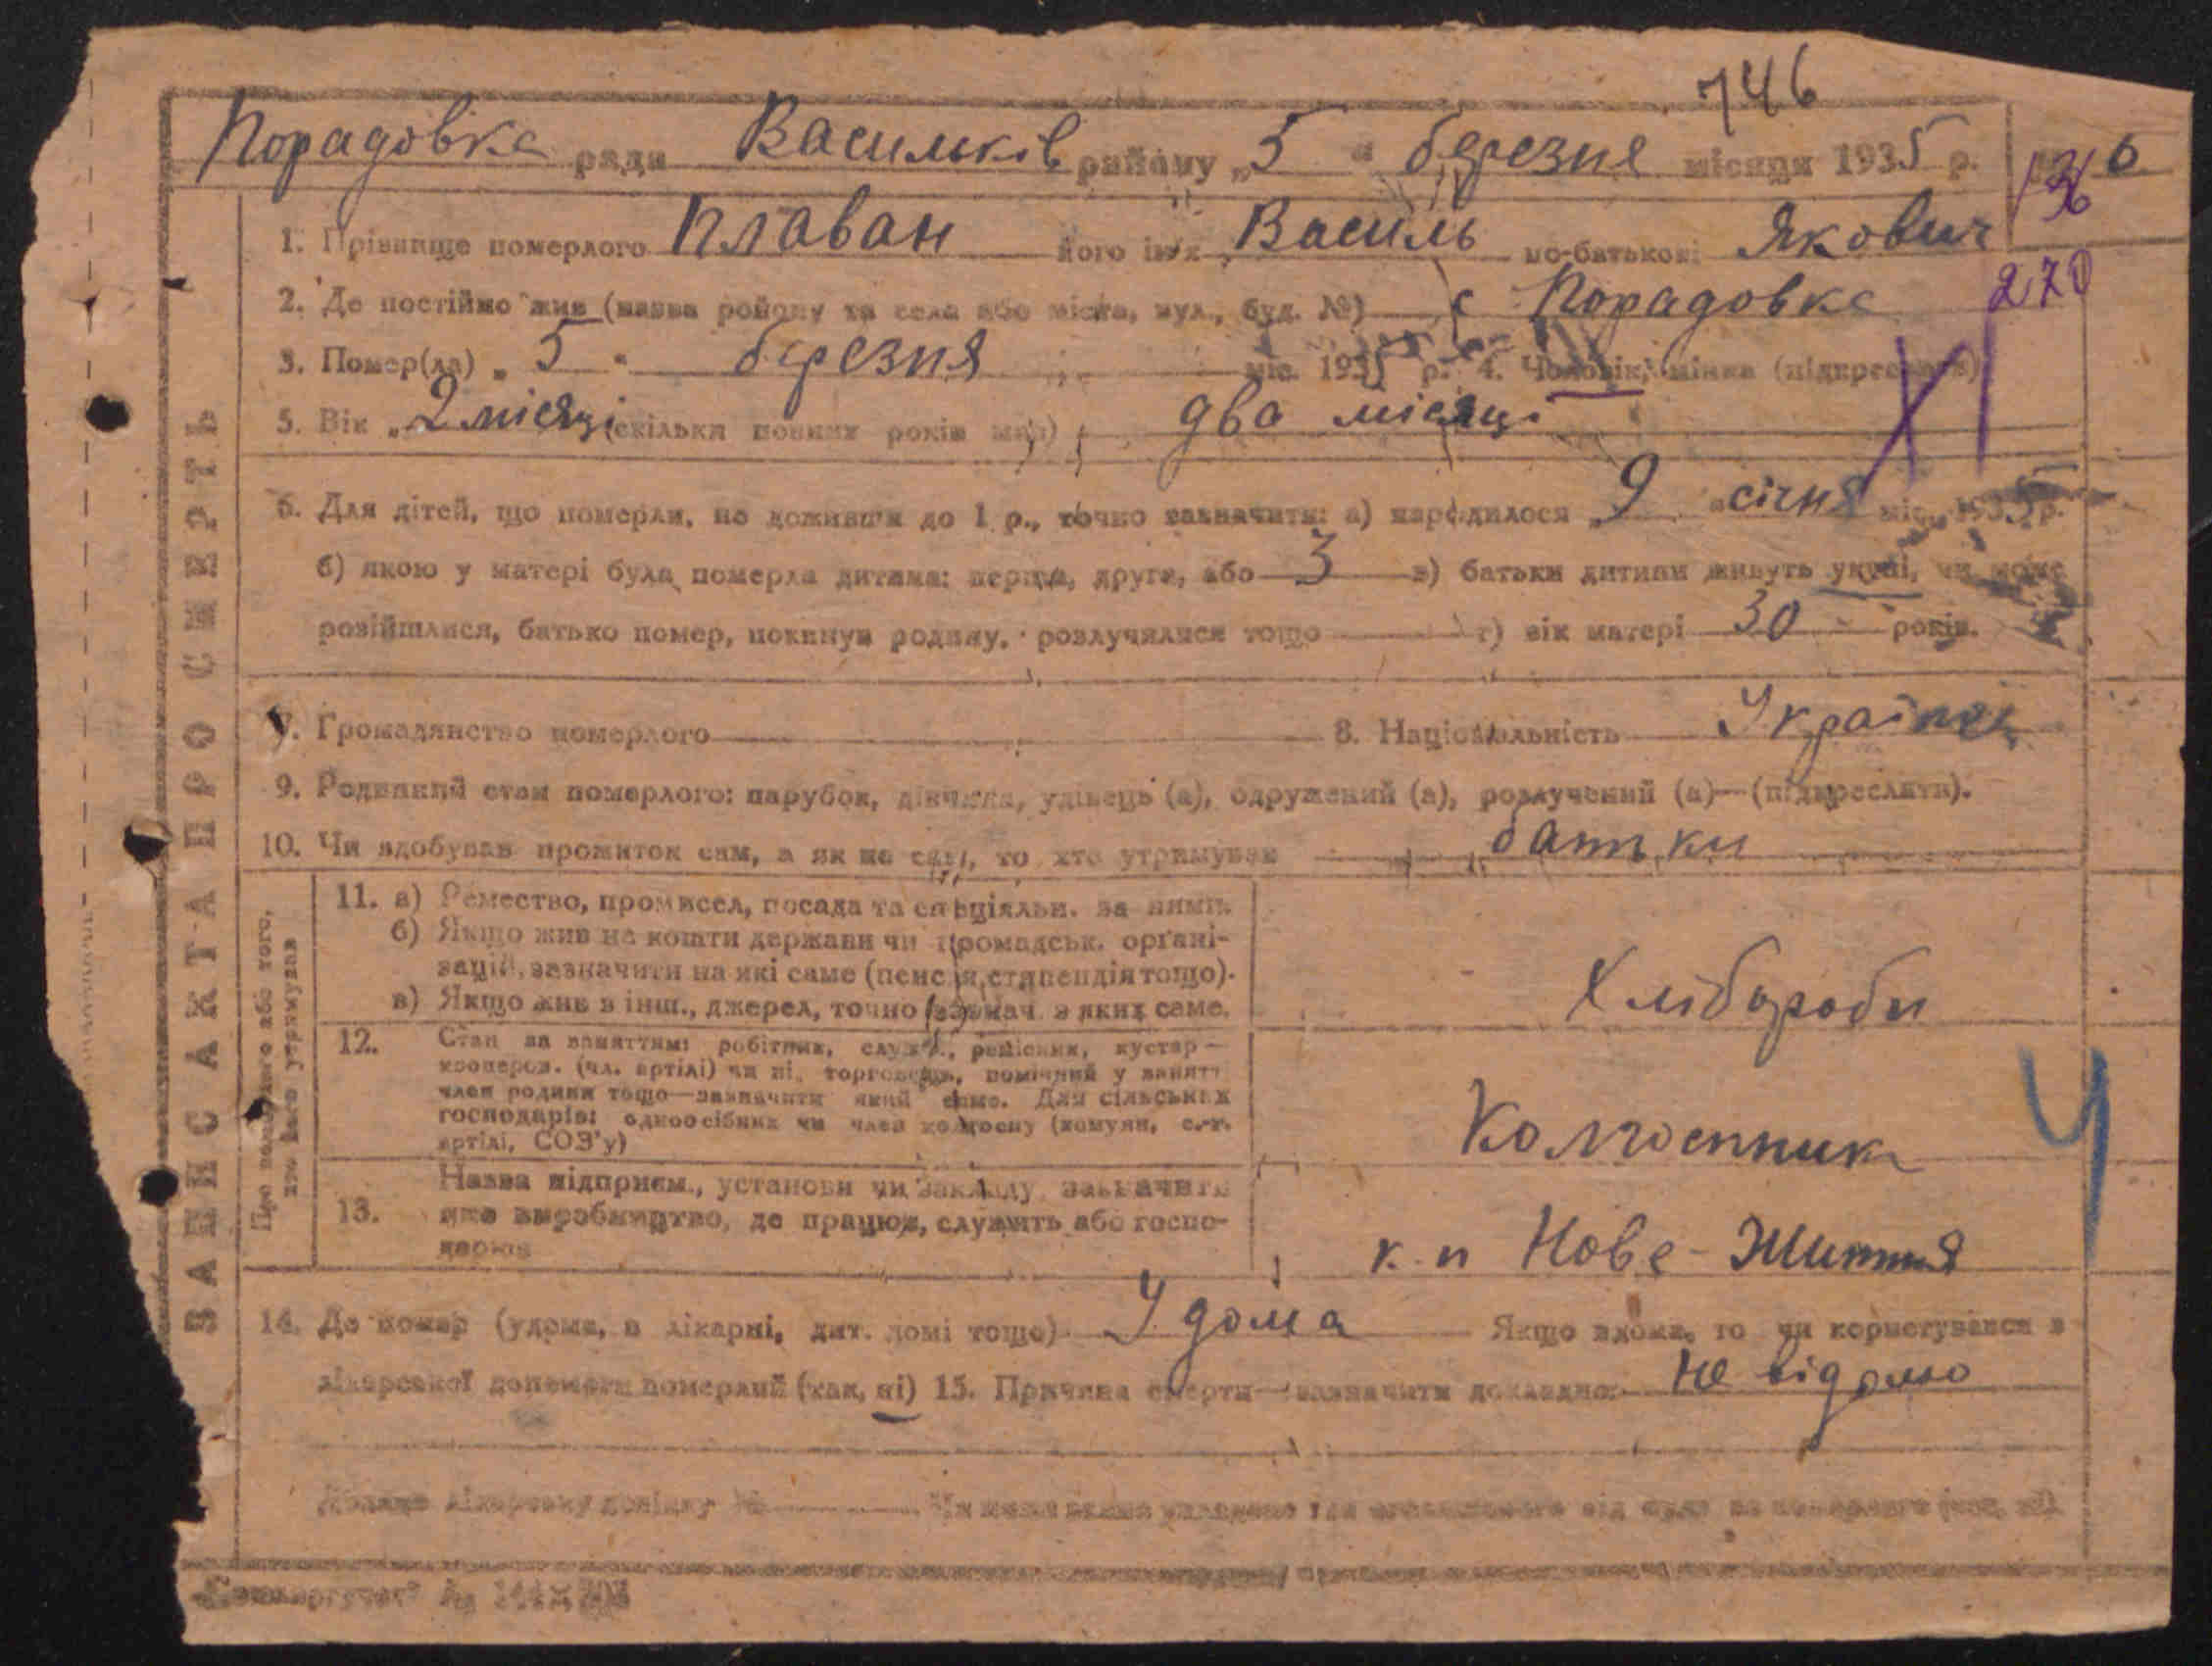 746
Порадовка ради Васильків району „5 “ березня місяця 1935 р. № 6
136
1. Прізвище померлого Плаван його ім'я Василь по-батькові Якович
270
2. Де постійно жив (назва району та села або міста, вул., буд. №) с Порадовка
3. Помер(ла) „ 5 “ березня міс. 1935 р. 4. Чоловік, жінка (підкреслити)
5. Вік „ 2 місяці (скільки повних років мав) два місяці
6. Для дітей, що померли, не доживши до 1 р., точно зазначити: а) народилося „ 9 “ січня міс. 1935 р.
б) якою у матері була померла дитина: перша, друга, або 3 в) батьки дитини живуть укупі, чи може
розійшлися, батько помер, покинув родину, розлучилися тощо г) вік матері 30 років.
7. Громадянство померлого 8. Національність Українец
9. Родинний стан померлого: парубок, дівчина, удівець (а), одружений (а), розлучений (а)—(підкреслити).
10. Чи здобував прожиток сам, а як не сам, то хто утримував батьки
ЗАПИС АКТА ПРО СМЕРТЬ
Про померлого або того, хто його утримував
11. а) Ремество, промисел, посада та спеціяльн. за ними.
б) Якщо жив на кошти держави чи громадськ. органі-
зацій, зазначити на які саме (пенсія, стипендія тощо).
в) Якщо жив з інш., джерел, точно зазнач. з яких саме.
Хлібороби
12. Стан за заняттям: робітник, служб., ремісник, кустар—
коопером. (чл. артілі) чи ні, торговець, помічний у занятт
член родини тощо—зазначити який саме. Для сільських
господарів: одноосібник чи член колгоспу (комуни, с.-г.
артілі, СОЗ'у)
Колгоспник
4
13. Назва підприєм., установи чи закладу, зазначити
яке виробництво, де працює, служить або госпо-
дарює
к. п Нове-Життя
14. Де помер (удома, в лікарні, дит. домі тощо) У дома Якщо вдома, то чи користувався з
лікарської допомоги померлий (так, ні) 15. Причина смерти—зазначити докладно: Не відомо
лікарську довідку №